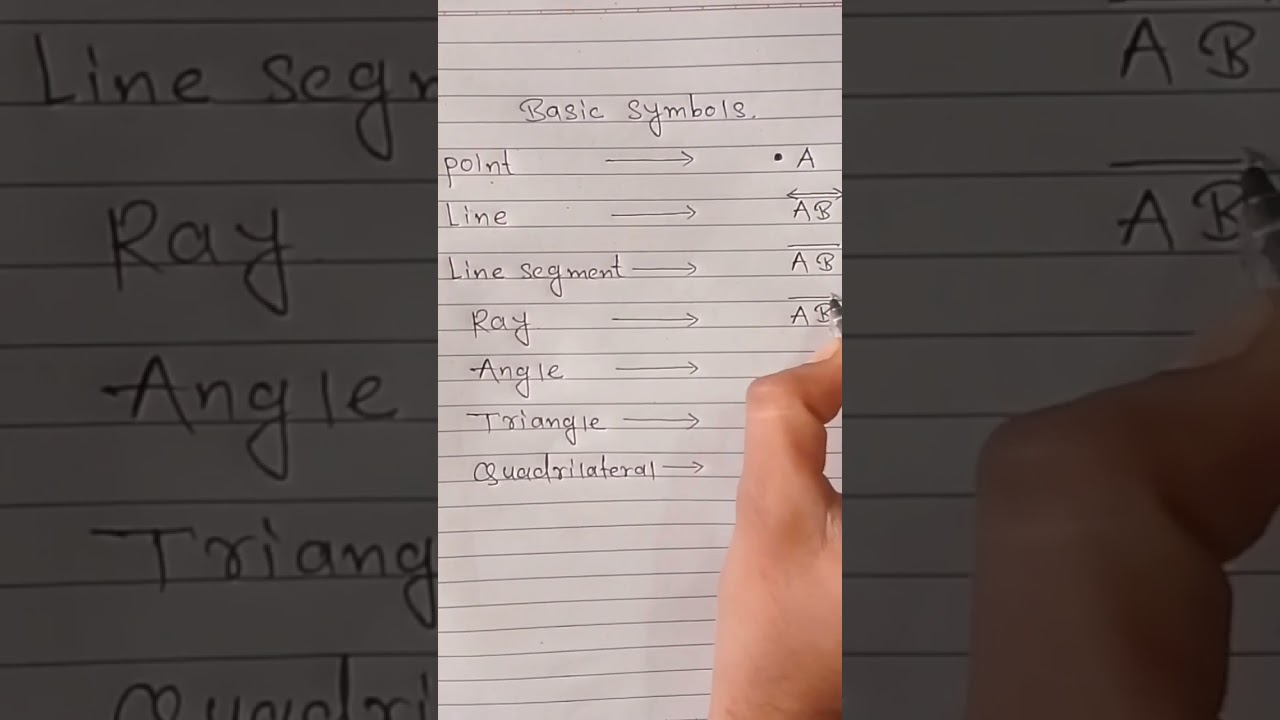 Basic symbols.
point → • A
Line → A͟B
Line segment → AB
Ray → AB
Angle →
Triangle →
Quadrilateral →